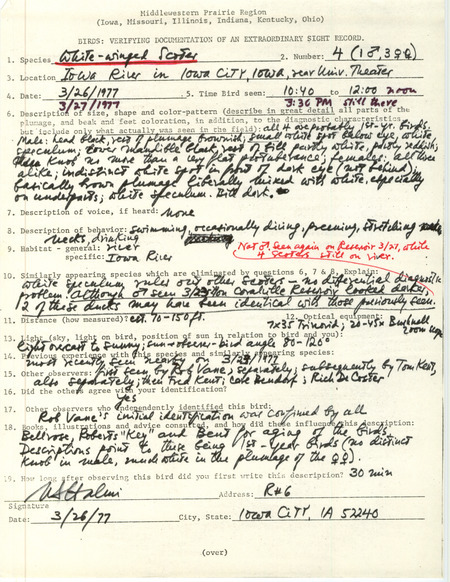 Middlewestern Prairie Region
(Iowa, Missouri, Illinois, Indiana, Kentucky, Ohio)
BIRDS: VERIFYING DOCUMENTATION OF AN EXTRAORDINARY SIGHT RECORD.
1. Species White-winged Scoter 2. Number: 4 (1♂, 3♀♀)
3. Location Iowa River in Iowa City, Iowa, near Univ. Theater
4. Date: 3/26/1977 5. Time Bird seen: 10:40 to 12:00 noon
3/27/1977 3:36 PM still there
6. Description of size, shape and color-pattern (describe in great detail all parts of the
plumage, and beak and feet coloration, in addition to the diagnostic characteristics,
but include only what actually was seen in the field): all 4 are probably 1st-yr. birds.
Male: head black, rest of plumage brownish; small white spot below eye, white
speculum; lower mandible black, rest of bill partly white, partly reddish;
knob no more than a very flat protuberance; females: all three
alike; indistinct white spot in front of dark eye (not behind)
basically brown plumage liberally mixed with white, especially
on underparts; white speculum. Bill dark.
7. Description of voice, if heard: none
8. Description of behavior: swimming, occasionally diving, preening, stretching
necks, drinking
9. Habitat - general: river
specific: Iowa River
Not ♂ seen again on Reservoir 3/27, while
4 Scoters still on river.
10. Similarly appearing species which are eliminated by questions 6, 7 & 8. Explain:
White speculum rules out other scoters - no differential diagnostic
problem. Although ♂ seen 3/27 on Coralville Reservoir looked darker,
2 of these ducks may have been identical with those previously seen.
11. Distance (how measured): est. 70-150 ft. 12. Optical equipment:
7x35 Trinovid; 20-45x Bushnell
zoom
13. Light (sky, light on bird, position of sun in relation to bird and you):
light overcast to sunny; sun-observer-bird angle 80-120°
14. Previous experience with this species and similarly appearing species:
most recently seen nearby on 3/23/1977
15. Other observers: first seen by Rob Vane, separately; subsequently by Tom Kent,
also separately; then Fred Kent; Rich De Coster
16. Did the others agree with your identification?
yes
17. Other observers who independently identified this bird:
Rob Vane's initial identification was confirmed by all
18. Books, illustrations and advice consulted, and how did these influence this description:
Bellrose, Roberts "Key" and Bent for aging of the birds.
Descriptions point to these being 1st-year birds (no distinct
knob in male, much white in the plumage of the ♀♀).
19. How long after observing this bird did you first write this description? 30 min
Address: R#6
Signature
Date: 3/26/77 City, State: Iowa City, IA 52240
(over)